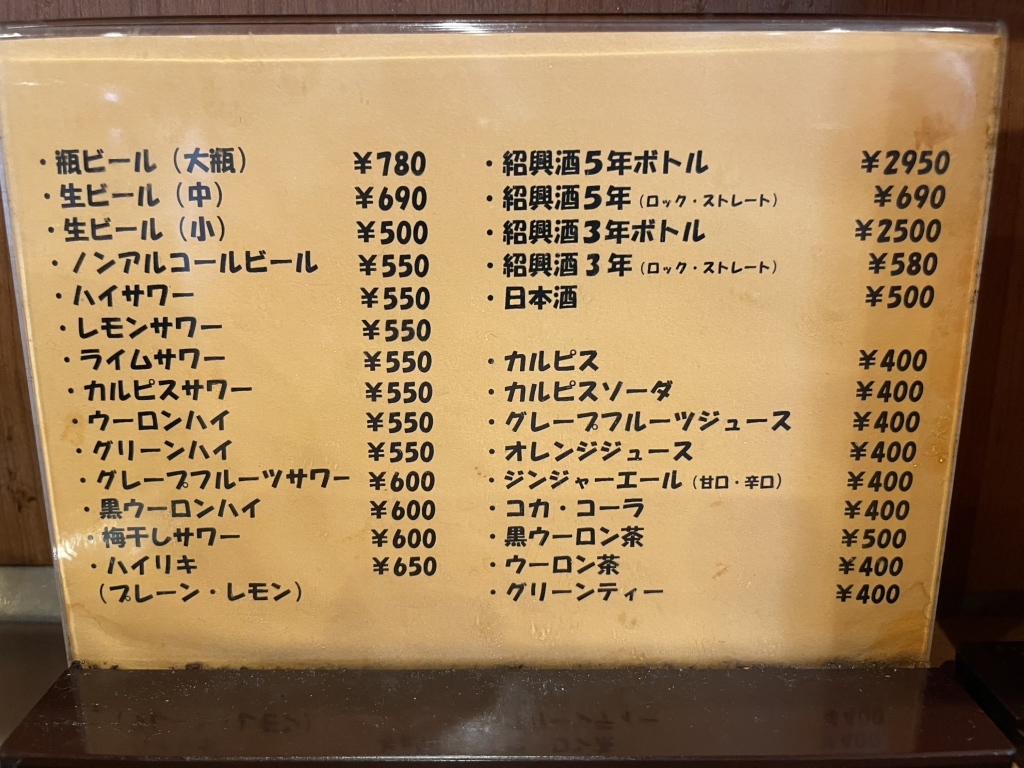 ・瓶ビール（大瓶） ¥780
・生ビール（中） ¥690
・生ビール（小） ¥500
・ノンアルコールビール ¥550
・ハイサワー ¥550
・レモンサワー ¥550
・ライムサワー ¥550
・カルピスサワー ¥550
・ウーロンハイ ¥550
・グリーンハイ ¥550
・グレープフルーツサワー ¥600
・黒ウーロンハイ ¥600
・梅干しサワー ¥600
・ハイリキ ¥650
（プレーン・レモン）
・紹興酒５年ボトル ¥2950
・紹興酒５年（ロック・ストレート） ¥690
・紹興酒３年ボトル ¥2500
・紹興酒３年（ロック・ストレート） ¥580
・日本酒 ¥500
・カルピス ¥400
・カルピスソーダ ¥400
・グレープフルーツジュース ¥400
・オレンジジュース ¥400
・ジンジャーエール（甘口・辛口） ¥400
・コカ・コーラ ¥400
・黒ウーロン茶 ¥500
・ウーロン茶 ¥400
・グリーンティー ¥400